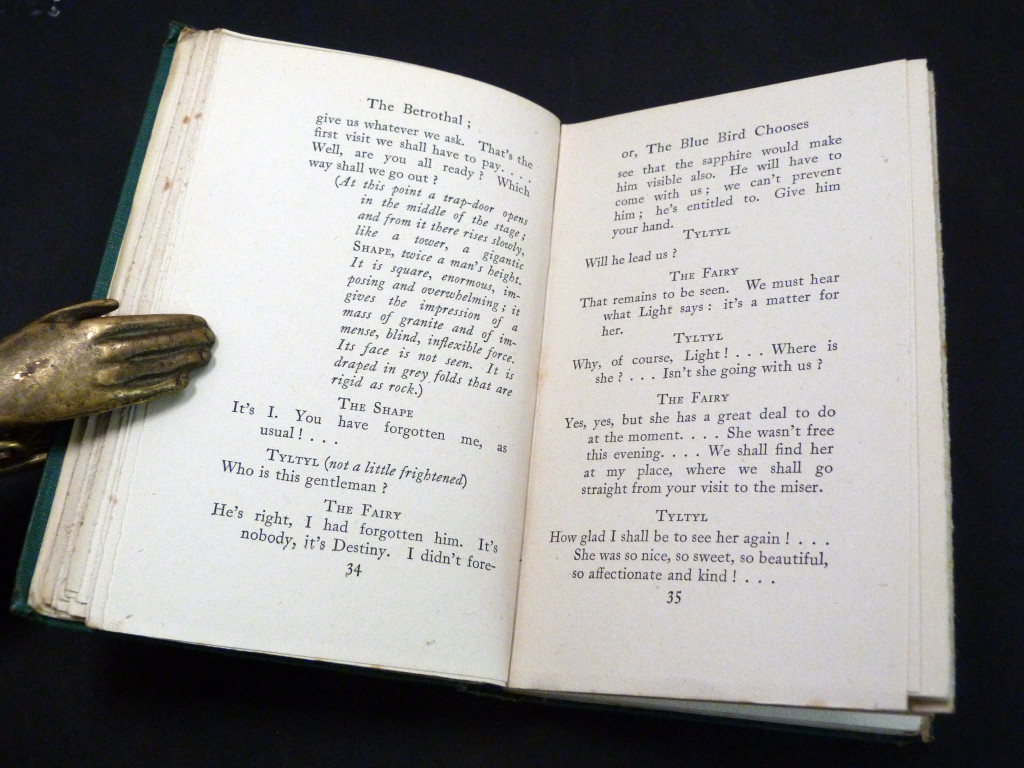 The Betrothal ;
give us whatever we ask. That's the
first visit we shall have to pay. . . .
Well, are you all ready ? Which
way shall we go out ?
(At this point a trap-door opens
in the middle of the stage ;
and from it there rises slowly,
like a tower, a gigantic
SHAPE, twice a man's height.
It is square, enormous, im-
posing and overwhelming ; it
gives the impression of a
mass of granite and of im-
mense, blind, inflexible force.
Its face is not seen. It is
draped in grey folds that are
rigid as rock.)
THE SHAPE
It's I. You have forgotten me, as
usual ! . . .
TYLTYL (not a little frightened)
Who is this gentleman ?
THE FAIRY
He's right, I had forgotten him. It's
nobody, it's Destiny. I didn't fore-
34
or, The Blue Bird Chooses
see that the sapphire would make
him visible also. He will have to
come with us ; we can't prevent
him ; he's entitled to. Give him
your hand.
TYLTYL
Will he lead us ?
THE FAIRY
That remains to be seen. We must hear
what Light says : it's a matter for
her.
TYLTYL
Why, of course, Light ! . . . Where is
she ? . . . Isn't she going with us ?
THE FAIRY
Yes, yes, but she has a great deal to do
at the moment. . . . She wasn't free
this evening. . . . We shall find her
at my place, where we shall go
straight from your visit to the miser.
TYLTYL
How glad I shall be to see her again ! . . .
She was so nice, so sweet, so beautiful,
so affectionate and kind ! . . .
35